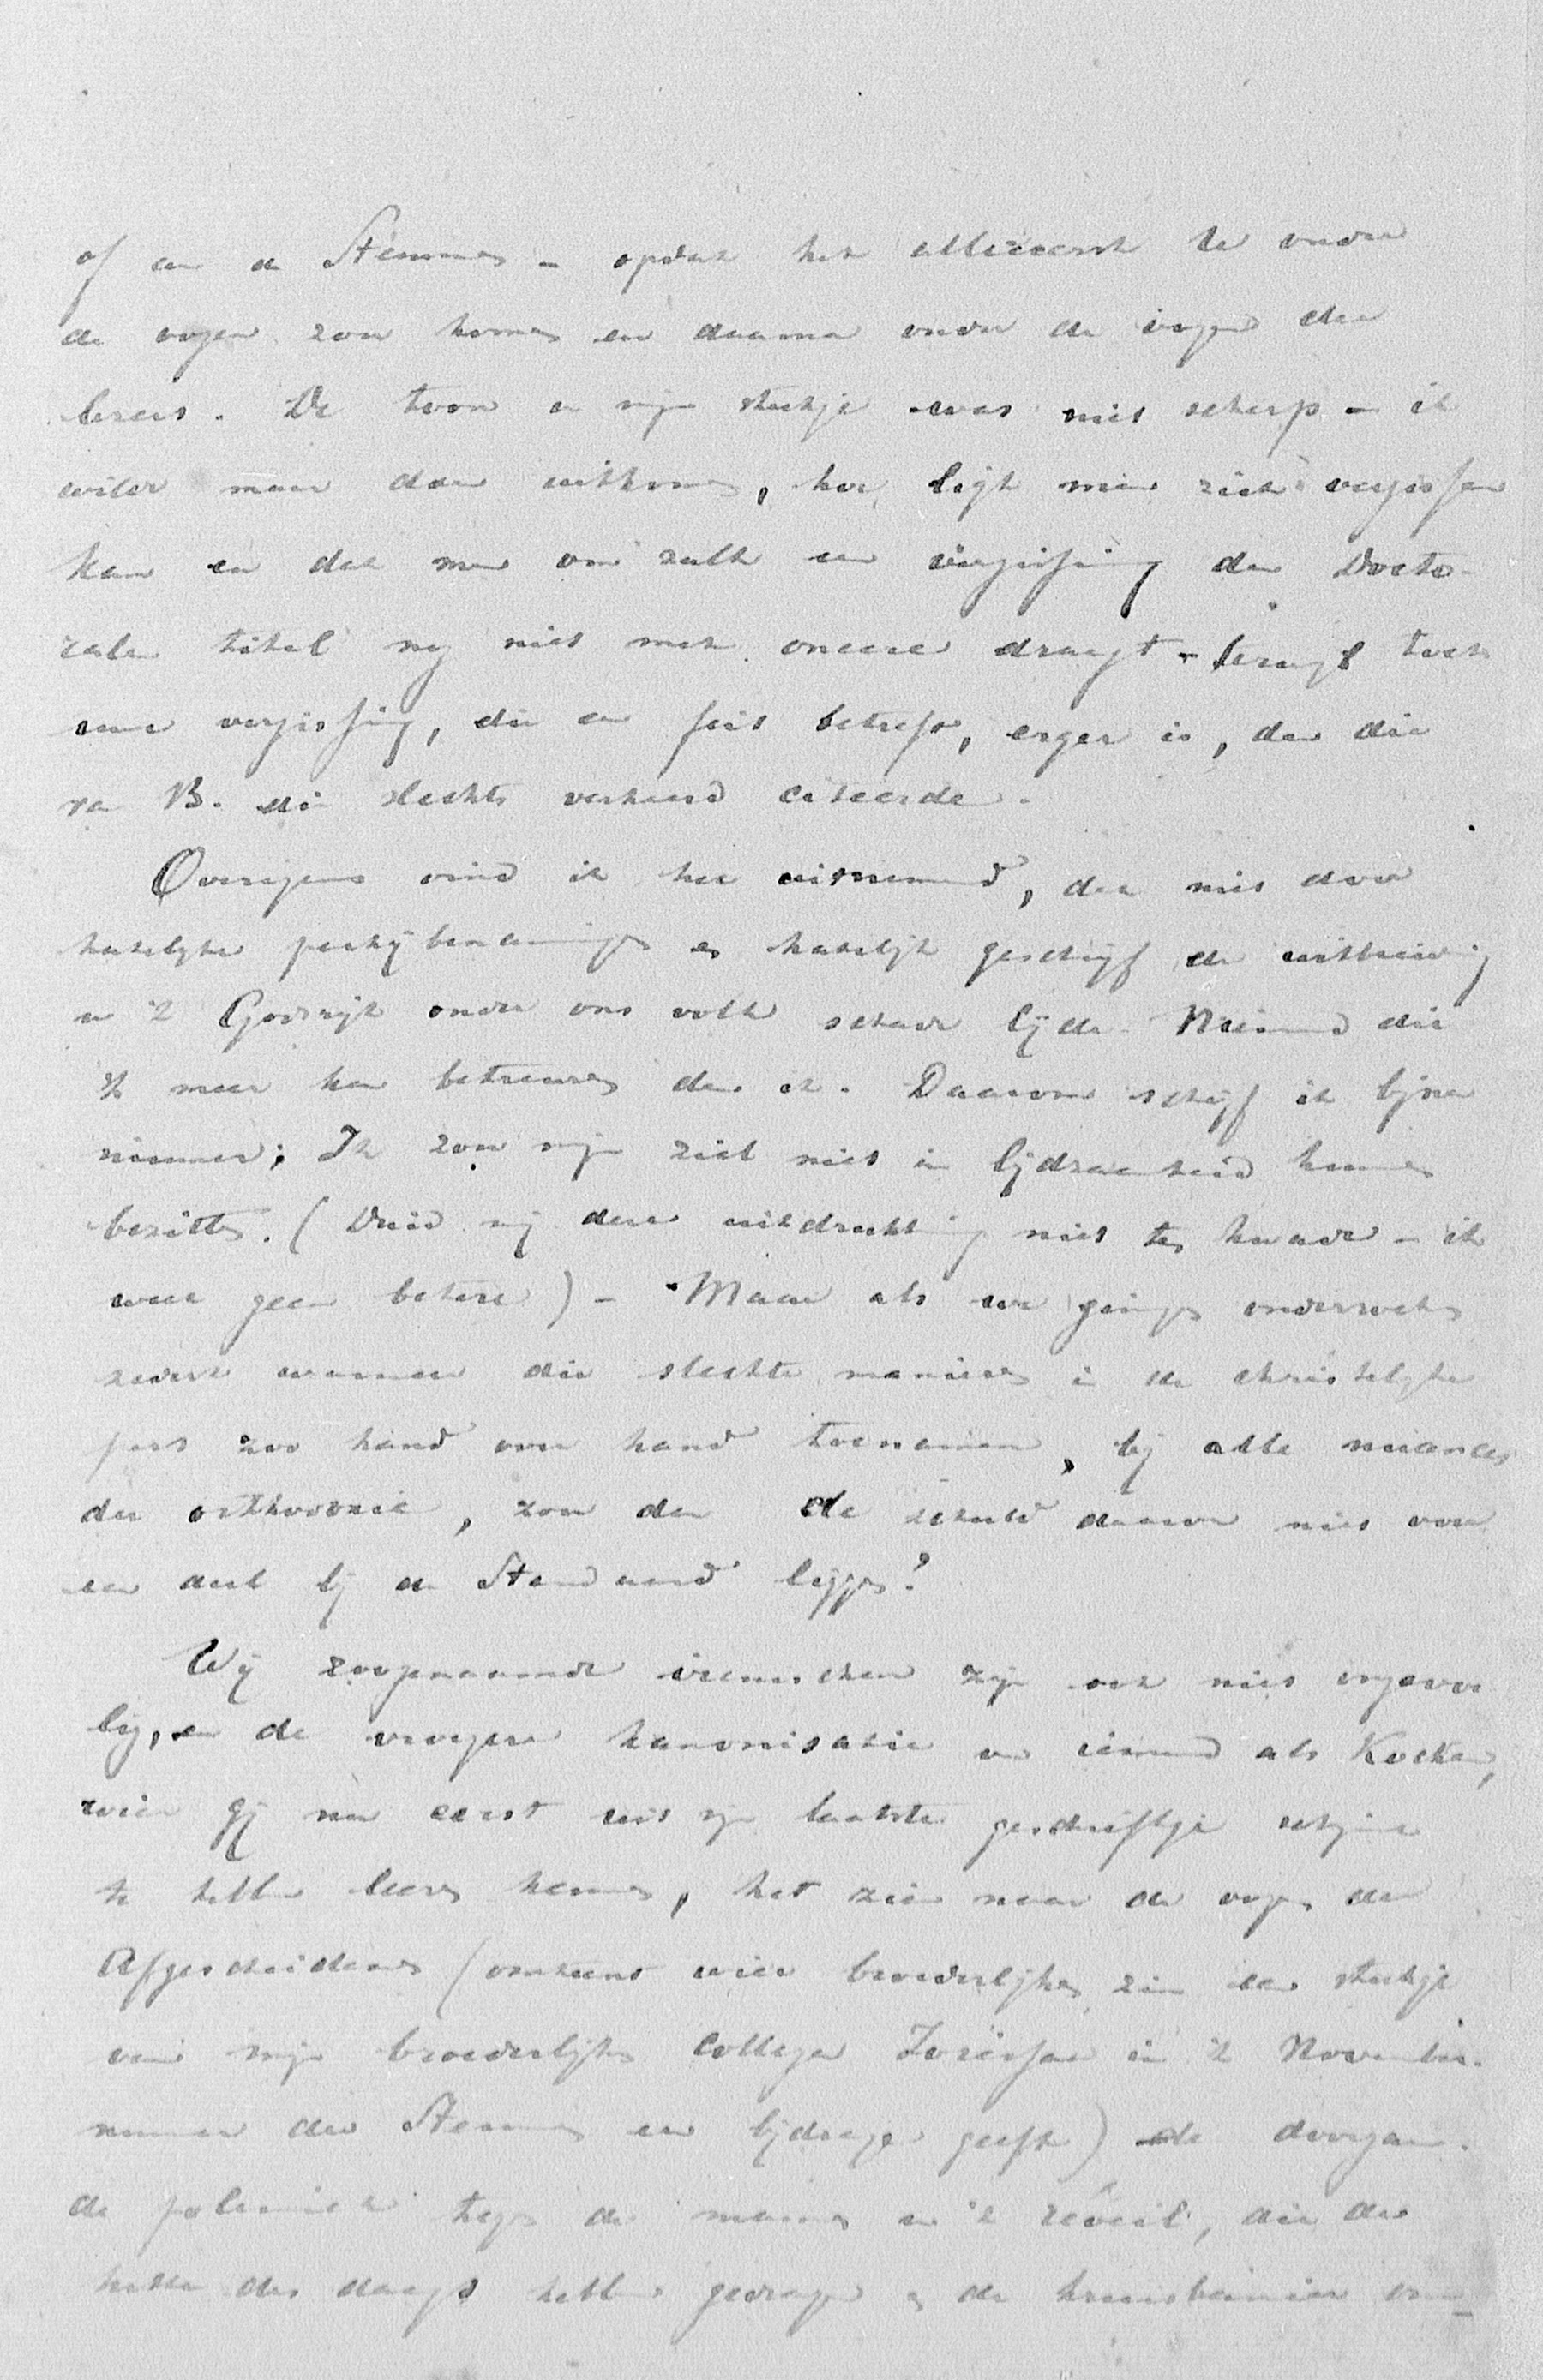 of in de Stemmen - opdat het allereerst te onder
de oogen zou komen en daarna onder de oogen der
lezers. De toon in mijn stukje was niet scherp - ik
wilde maar doen uitkomen, hoe ligt men zich vergissen
kan en dat men om zulk een vergissing den Docto-
ralen titel nog niet met oneere draagt - terwijl toch
uwe vergissing, die een feit betrof, erger is, dan die
van B. die slechts verkeerd citeerde.
Overigens vind ik het uitnemend, dat niet door
hatelijke partijbenamingen en hatelijk geschrijf de uitbreiding
van 't Godsrijk onder ons volk schade lijde. Niemand die
't meer kan betreuren dan ik. Daarom schrijf ik bijna
nimmer; Ik zou mijn ziel niet in lijdzaamheid kunnen
bezitten. (Duid mij deze uitdrukking niet ten kwade - ik
weet geen betere) - Maar als we gingen onderzoeken
sedert wanneer die slechte manieren in de christelijke
pers zoo hand over hand toenamen, bij alle nuances
der orthodoxie, zou dan de schuld daarvan niet voor
een deel bij de Standaard liggen?
Wij zoogenaamde irenischen zijn ook niet ongevoe
lig, en de vroegere kanonisatie van iemand als Kock
wien gij nu eerst uit zijn laatste geschriftje schijnt
te hebben leeren kennen, het zien naar de oogen der
Afgescheidenen (omtrent wier broederlijken zin een stukje
van mijn broederlijken Collega Jorissen in 't November-
nummer der Stemmen een bijdrage geeft) de doorgaan-
de polemiek tegen de mannen van 't réveil, die de
hitte des daags hebben gedragen en de kruisbanier